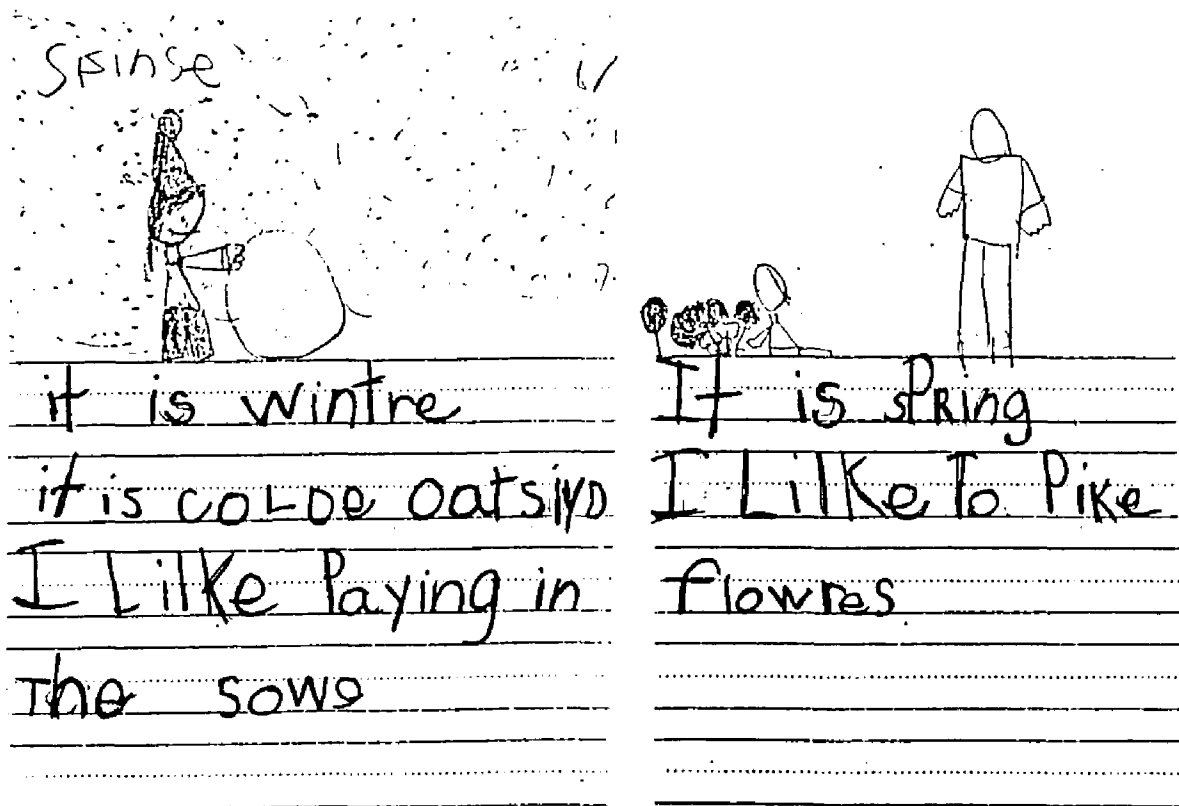 Spinse
it is wintre
it is coLDe oatsiyD
I Lilke Paying in
The sowe
It is sPRing
I LilKe To Pike
flowres